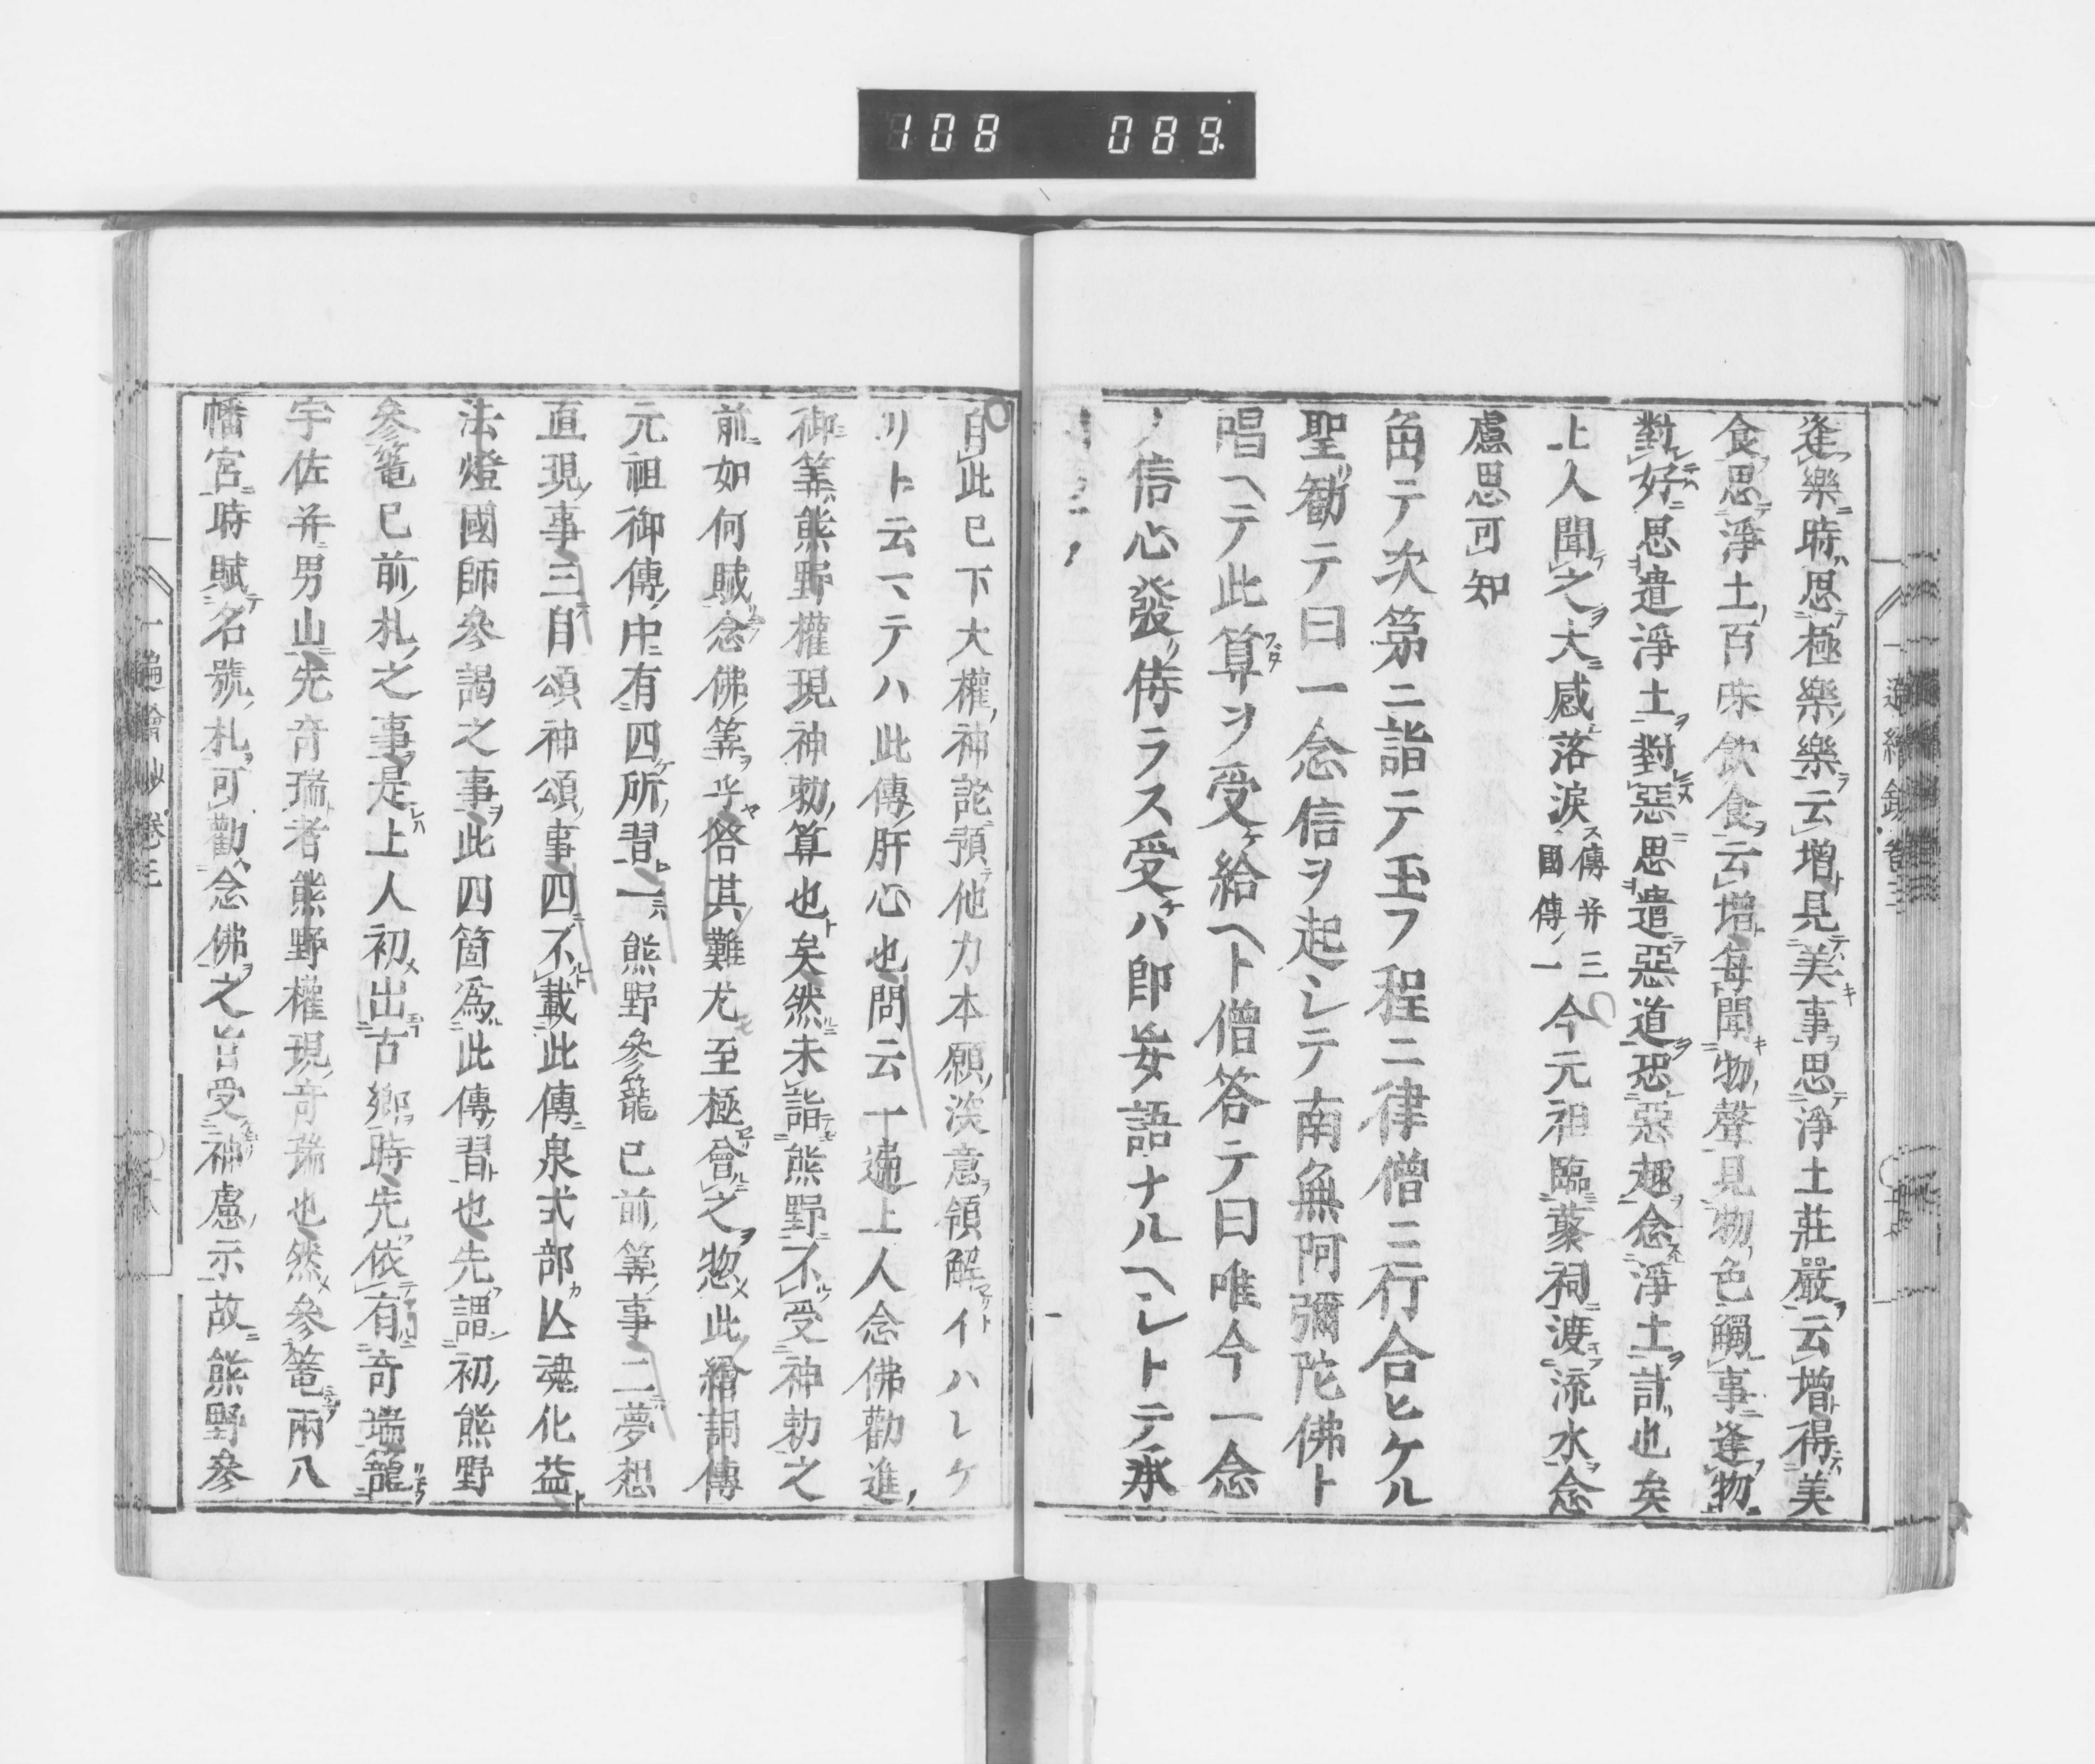 108 089
逢樂時思極樂樂云増見美事思淨土莊嚴云増得美
食思淨土百味飲食云増毎聞物聲見物色觸事逢物
對好思遣淨土對惡思遣惡道恐惡趣念淨土計也矣
上人聞之大感落涙ス傳并三國傳ノ一今元祖臨藁祠渡流水念
慮思可知
角テ次第ニ詣テ玉フ程ニ律僧ニ行合ヒケル
聖勸テ曰一念信ヲ起シテ南無阿彌陀佛ト
唱ヘテ此算ヲ受ケ給ヘト僧答テ曰唯今一念
ノ信心發リ侍ラス受ケハ即妄語ナルヘシトテ承
自此已下大權神託預他力本願深意領解イハレケ
リト云々テハ此傳肝心也問云一遍上人念佛勸進
御筭熊野權現神勅算也矣然未詣熊野不受神勅之
前如何賦念佛筭乎答其難尤至極會之惣此繪詞傳
元祖御傳中有四所習一熊野參籠已前筭事二夢想
直現事三自頌神頌事四不載此傳泉式部亾魂化益
法燈國師參謁之事此四箇爲此傳習也先謂初熊野
參篭已前札之事是上人初出古郷時先依有奇瑞籠
宇佐并男山先奇瑞者熊野權現奇瑞也然參篭兩八
幡宮時賦名號札可勸念佛之旨受神慮示故熊野參
一遍繪鈔卷三
一遍繪鈔卷三